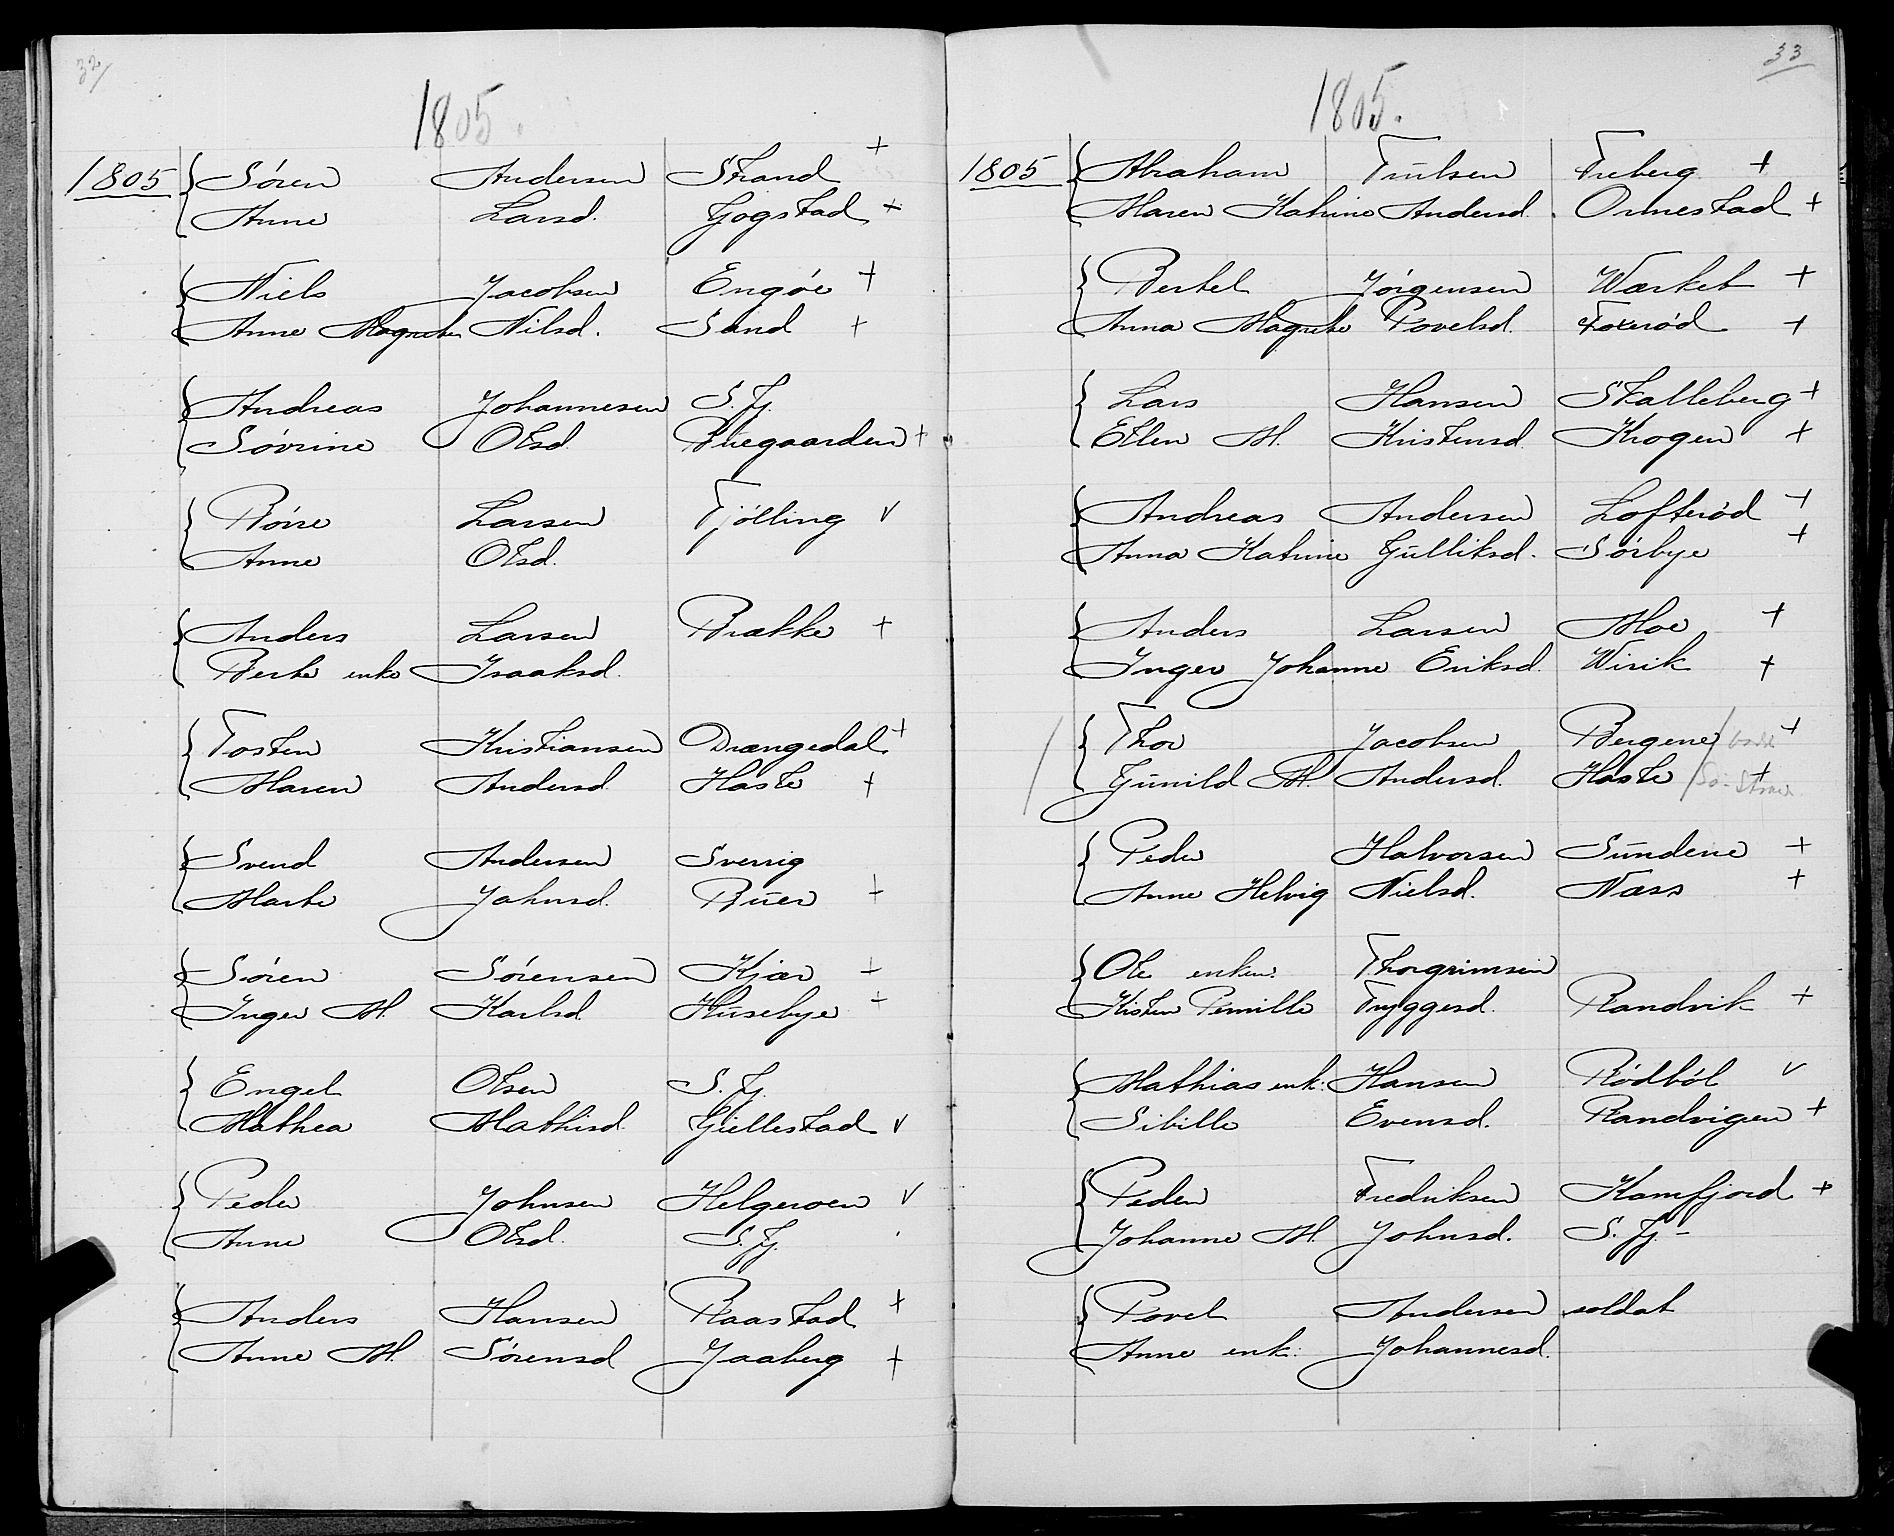 32
1805.
1805 Sören Andersen Strand +
Anne Larsd. Gogstad +
Niels Jacobsen Engöe +
Anne Magrethe Nilsd. Sand +
Andreas Johannesen S. Fj.
Sövrine Olsd. Bugaarden +
Börre Larsen Tjölling v
Anne Olsd.
Anders Larsen Brække +
Berte enke Isaaksd.
Tosten Kristiansen Drangedal +
Maren Andersd. Haste +
Svend Andersen Sverrig
Marte Johnsd. Buer +
Sören Sörensen Kjær +
Inger M. Karlsd. Husebye +
Engel Olsen S. Fj.
Mathea Mathisd. Gjellestad v
Peder Johnsen Helgeroen v
Anne Olsd. S. Fj.
Anders Hansen Raastad +
Anne M. Sörensd. Jaaberg +
33
1805.
1805 Abraham Trulsen Freberg +
Maren Katrine Andersd. Ormestad +
Bertel Jörgensen Wærket +
Anna Magrethe Povelsd. Foxeröd +
Lars Hansen Skalleberg +
Ellen M. Kristensd. Krogen +
Andreas Andersen Lofteröd +
Anna Katrine Gulliksd. Sörbye +
Anders Larsen Moe +
Inger Johanne Eriksd. Wirik +
Thor Jacobsen Bergene +
Gunild M. Andersd. Haste +
Peder Halvorsen Sundene +
Anne Helvig Nielsd. Næss +
Ole enkem: Thorgrimsen
Kisten Pernille Tryggesd. Randvik +
Mathias enk: Hansen Rödböl v
Sibille Evensd. Randvigen +
Peder Fredriksen Kamfjord +
Johanne M. Johnsd. S. Fj. -
Povel Andersen soldat
Anne enk: Johannesd.